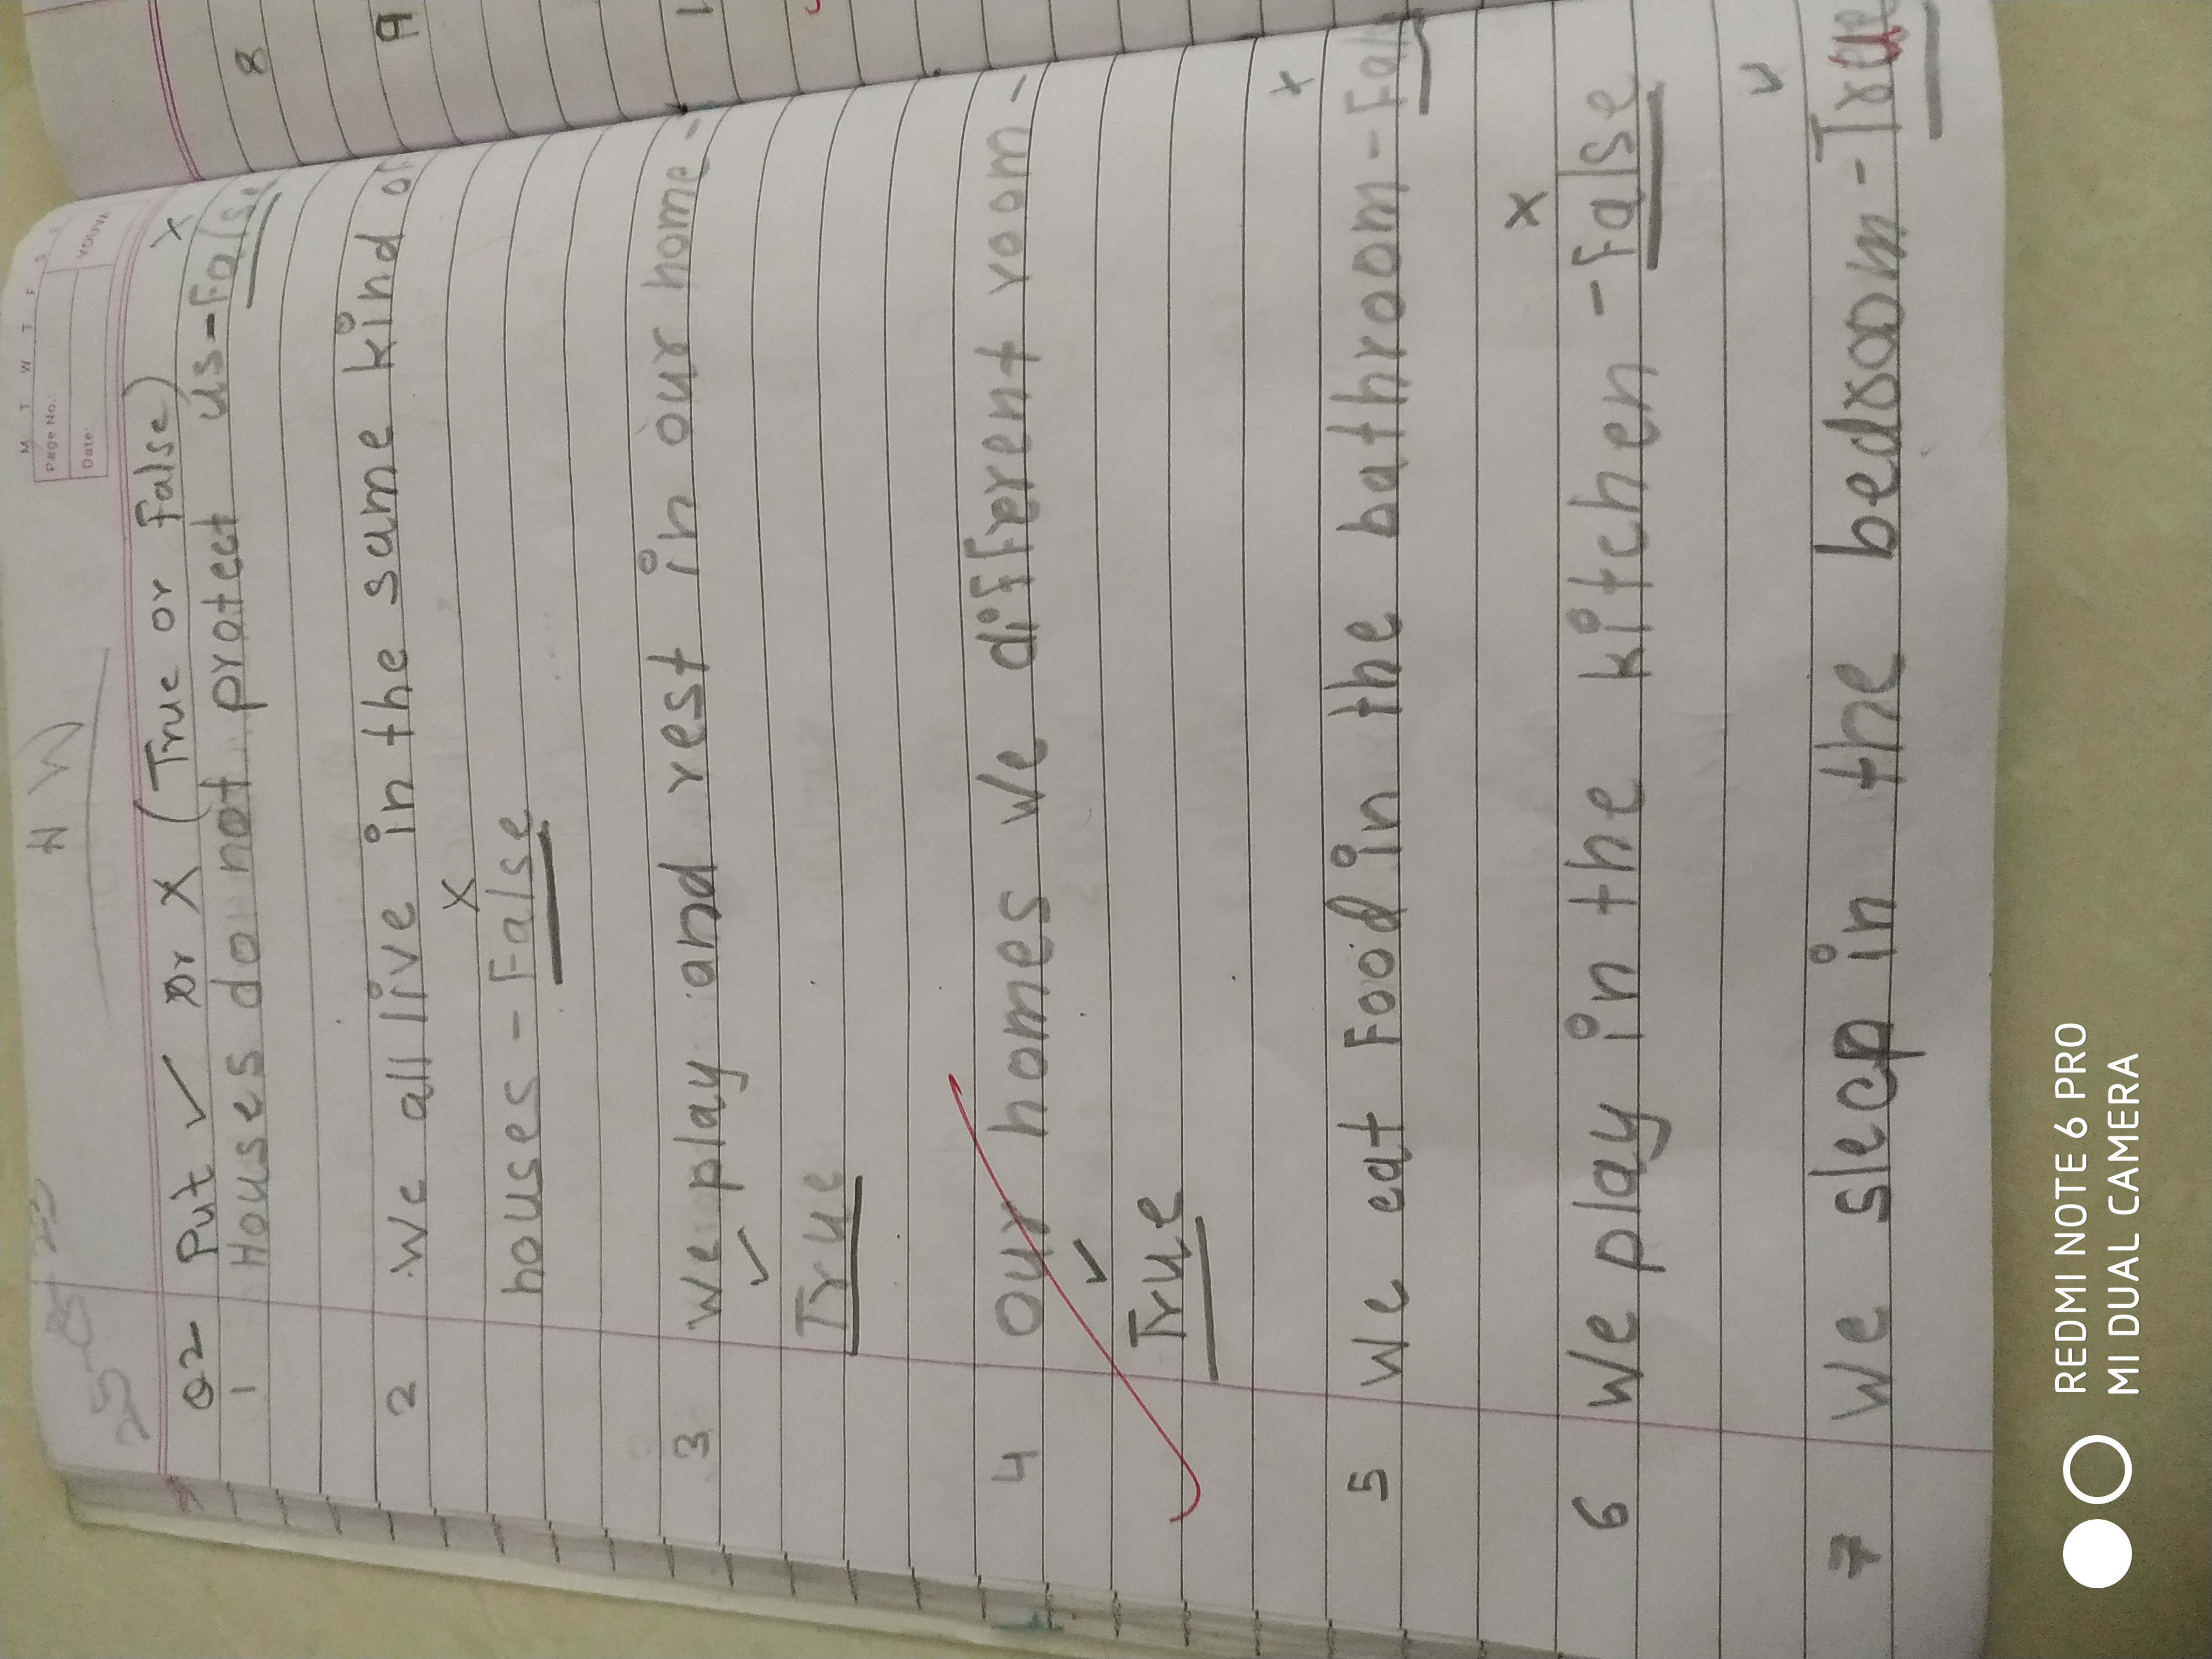 H W
M T W T F S
Page No.:
Date:
YOUVA
Q2 Put ✓ or X (True or False)
X
1 Houses do not protect us - False
2 We all live in the same kind of
X
houses - False
3 We play and rest in our home -
✓
True
4 Our homes we different room -
✓
True
X
5 We eat Food in the bathroom - False
X
6 We play in the kitchen - False
✓
7 We sleep in the bedroom - True
8
9
REDMI NOTE 6 PRO
MI DUAL CAMERA